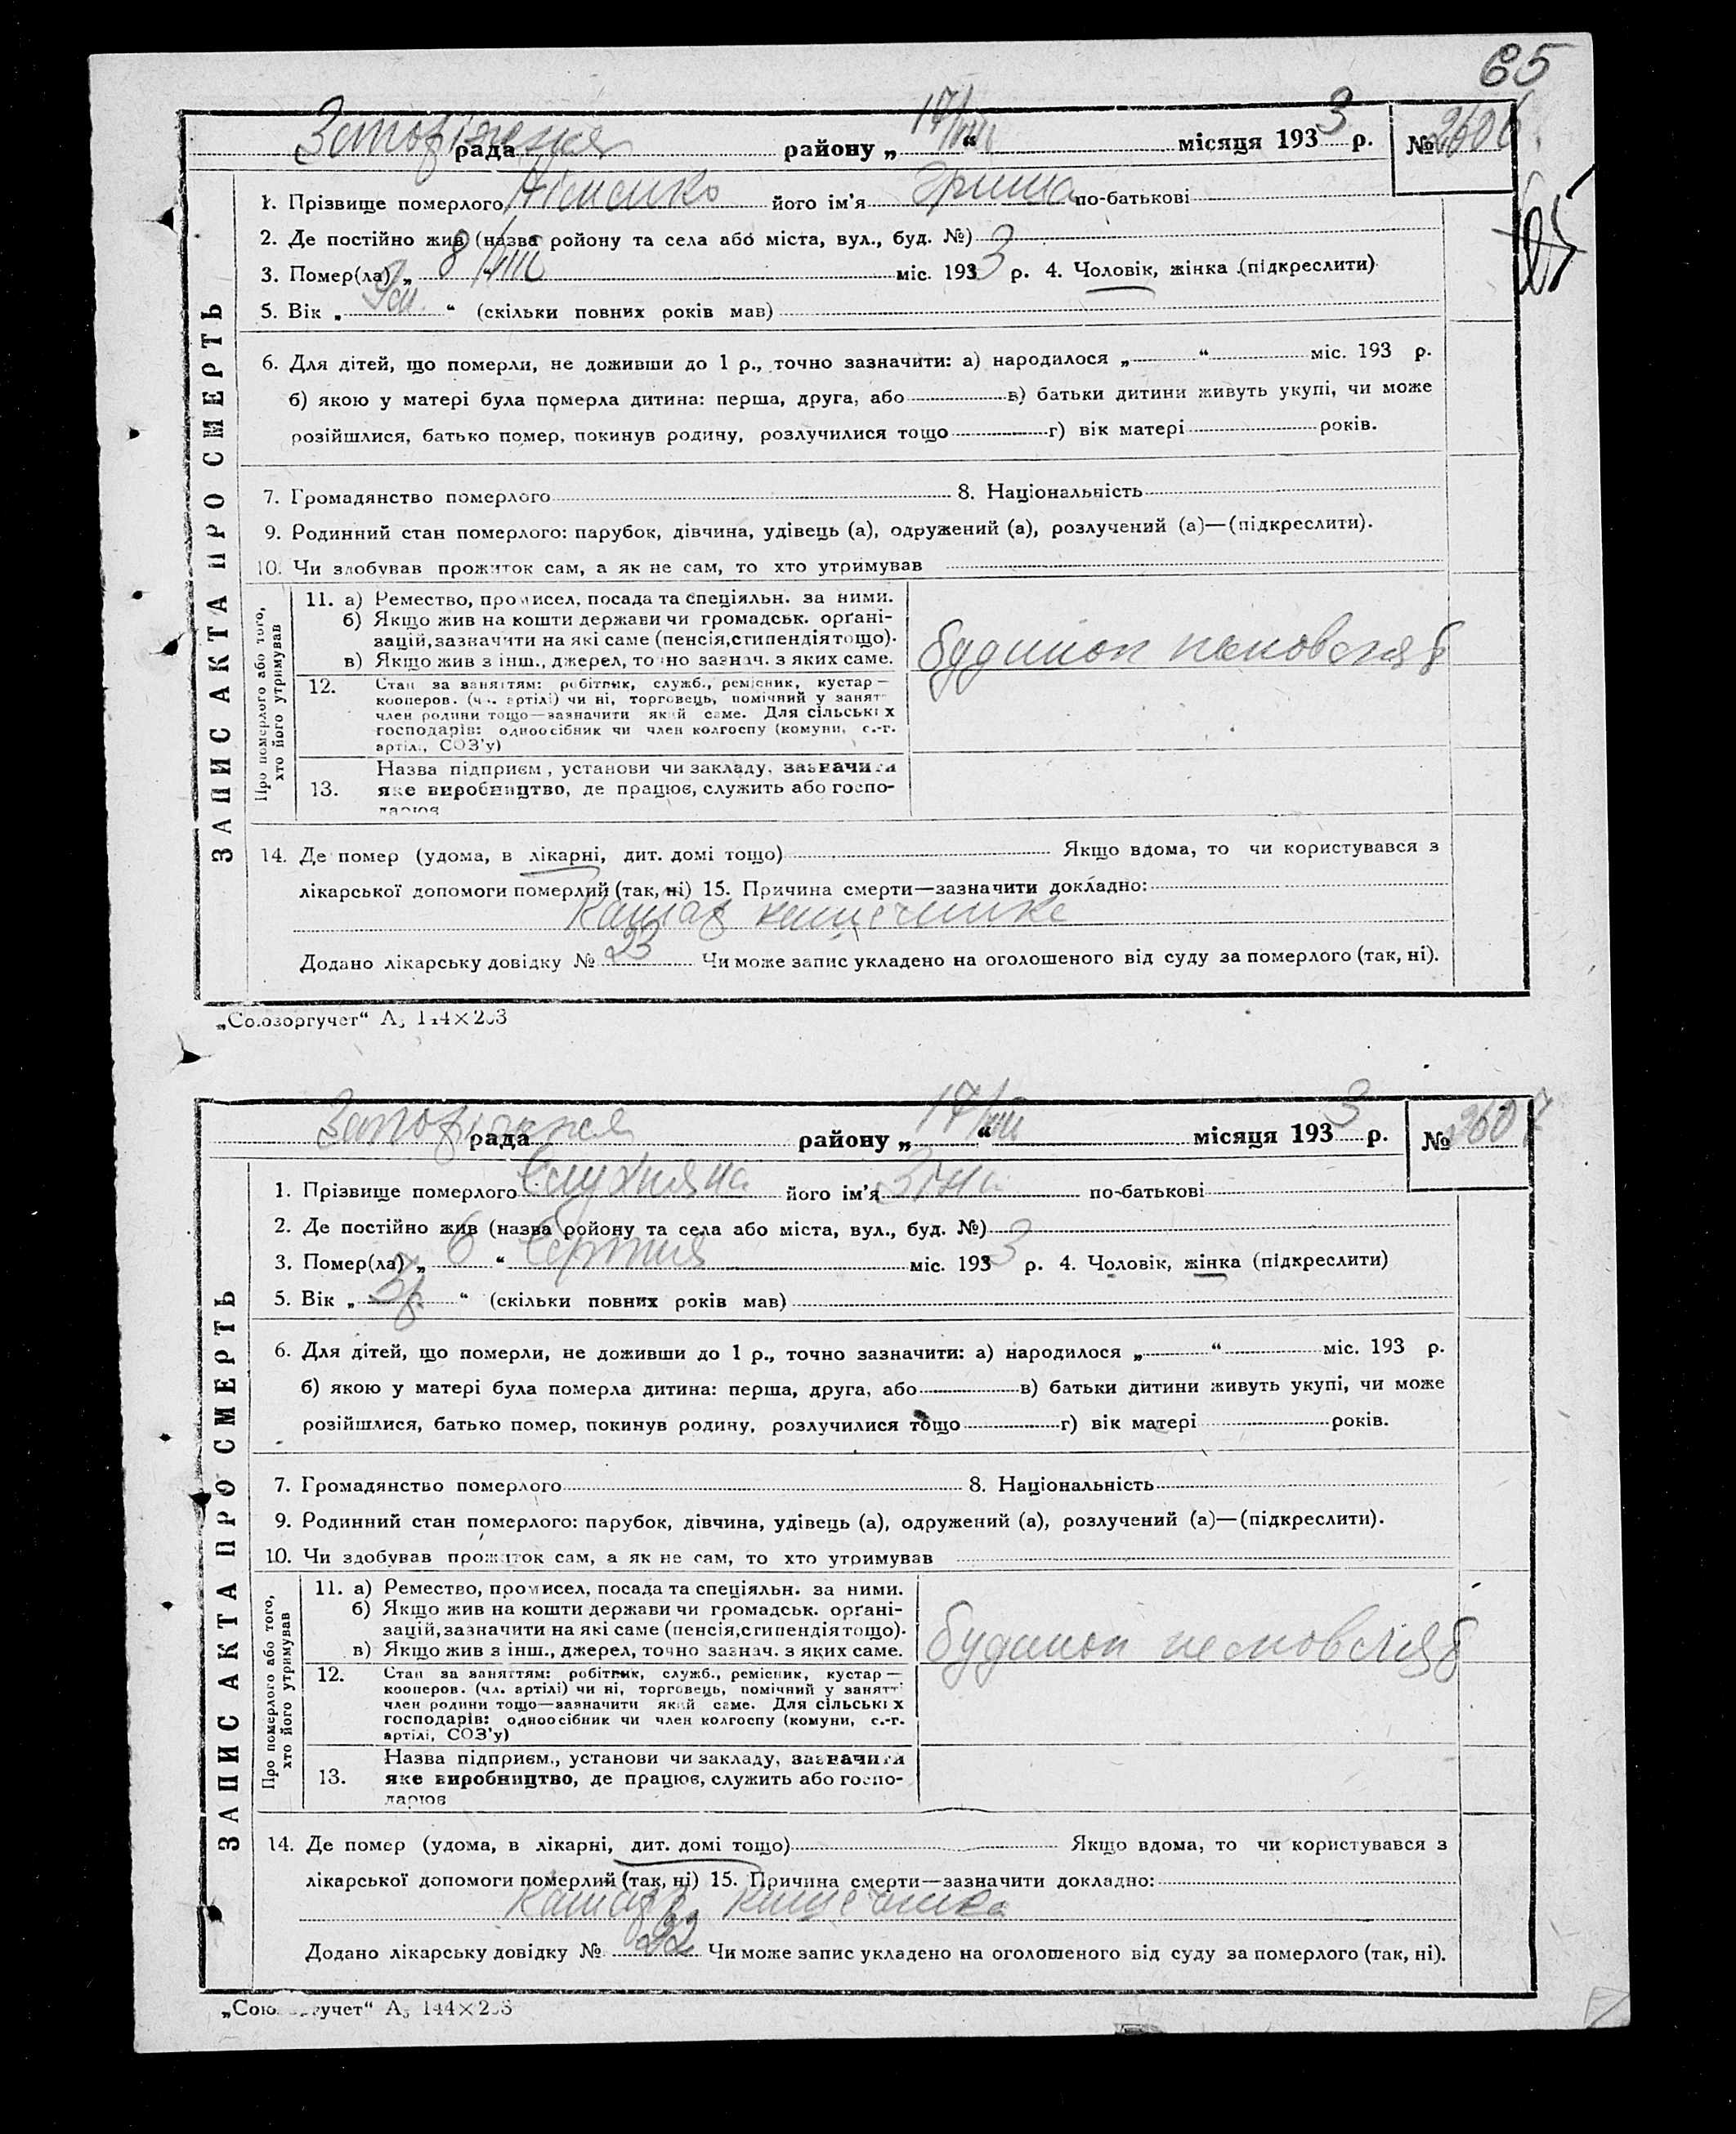 65
Запоріжжя рада району „ 17/VIII “ місяця 1933 р. № 2606
1. Прізвище померлого його ім'я Гриша по-батькові
2. Де постійно жив (назва ройону та села або міста, вул., буд. №)
3. Помер(ла) „ 8/VIII міс. 1933 р. 4. Чоловік, жінка (підкреслити)
5. Вік „ 9 м. “ (скільки повних років мав)
6. Для дітей, що померли, не доживши до 1 р., точно зазначити: а) народилося „ “ міс. 193 р.
б) якою у матері була померла дитина: перша, друга, або в) батьки дитини живуть укупі, чи може
розійшлися, батько помер, покинув родину, розлучилися тощо г) вік матері років.
7. Громадянство померлого 8. Національність
9. Родинний стан померлого: парубок, дівчина, удівець (а), одружений (а), розлучений (а)—(підкреслити).
10. Чи здобував прожиток сам, а як не сам, то хто утримував
ЗАПИС АКТА ПРО СМЕРТЬ
Про померлого або того,
хто його утримував
11. а) Ремество, промисел, посада та спеціяльн. за ними.
б) Якщо жив на кошти держави чи громадськ. орґані-
зацій, зазначити на які саме (пенсія, стипендія тощо).
в) Якщо жив з інш., джерел, точно зазнач. з яких саме.
будинок немовляб
12. Стан за заняттям: робітник, служб., ремісник, кустар—
кооперов. (чл. артілі) чи ні, торговець, помічний у занятт
член родини тощо—зазначити який саме. Для сільських
господарів: одноосібник чи член колгоспу (комуни, с.-г.
артілі, СОЗ'у)
13. Назва підприєм., установи чи закладу, зазначити
яке виробництво, де працює, служить або госпо-
дарює
14. Де помер (удома, в лікарні, дит. домі тощо) Якщо вдома, то чи користувався з
лікарської допомоги померлий (так, ні) 15. Причина смерти—зазначити докладно:
Катар кишечника
Додано лікарську довідку № 23 Чи може запис укладено на оголошеного від суду за померлого (так, ні).
„Союзоргучет“ А₅ 144×203
Запоріжжя рада району „ 17/VIII “ місяця 1933 р. № 2607
1. Прізвище померлого його ім'я Зіна по-батькові
2. Де постійно жив (назва ройону та села або міста, вул., буд. №)
3. Помер(ла) „ 6 “ Серпня міс. 1933 р. 4. Чоловік, жінка (підкреслити)
5. Вік „ “ (скільки повних років мав)
6. Для дітей, що померли, не доживши до 1 р., точно зазначити: а) народилося „ “ міс. 193 р.
б) якою у матері була померла дитина: перша, друга, або в) батьки дитини живуть укупі, чи може
розійшлися, батько помер, покинув родину, розлучилися тощо г) вік матері років.
7. Громадянство померлого 8. Національність
9. Родинний стан померлого: парубок, дівчина, удівець (а), одружений (а), розлучений (а)—(підкреслити).
10. Чи здобував прожиток сам, а як не сам, то хто утримував
ЗАПИС АКТА ПРО СМЕРТЬ
Про померлого або того,
хто його утримував
11. а) Ремество, промисел, посада та спеціяльн. за ними.
б) Якщо жив на кошти держави чи громадськ. орґані-
зацій, зазначити на які саме (пенсія, стипендія тощо).
в) Якщо жив з інш., джерел, точно зазнач. з яких саме.
будинок немовляб
12. Стан за заняттям: робітник, служб., ремісник, кустар—
кооперов. (чл. артілі) чи ні, торговець, помічний у занятт
член родини тощо—зазначити який саме. Для сільських
господарів: одноосібник чи член колгоспу (комуни, с.-г.
артілі, СОЗ'у)
13. Назва підприєм., установи чи закладу, зазначити
яке виробництво, де працює, служить або госпо-
дарює
14. Де помер (удома, в лікарні, дит. домі тощо) Якщо вдома, то чи користувався з
лікарської допомоги померлий (так, ні) 15. Причина смерти—зазначити докладно:
Катар кишечника
Додано лікарську довідку № 22 Чи може запис укладено на оголошеного від суду за померлого (так, ні).
„Союзоргучет“ А₅ 144×203